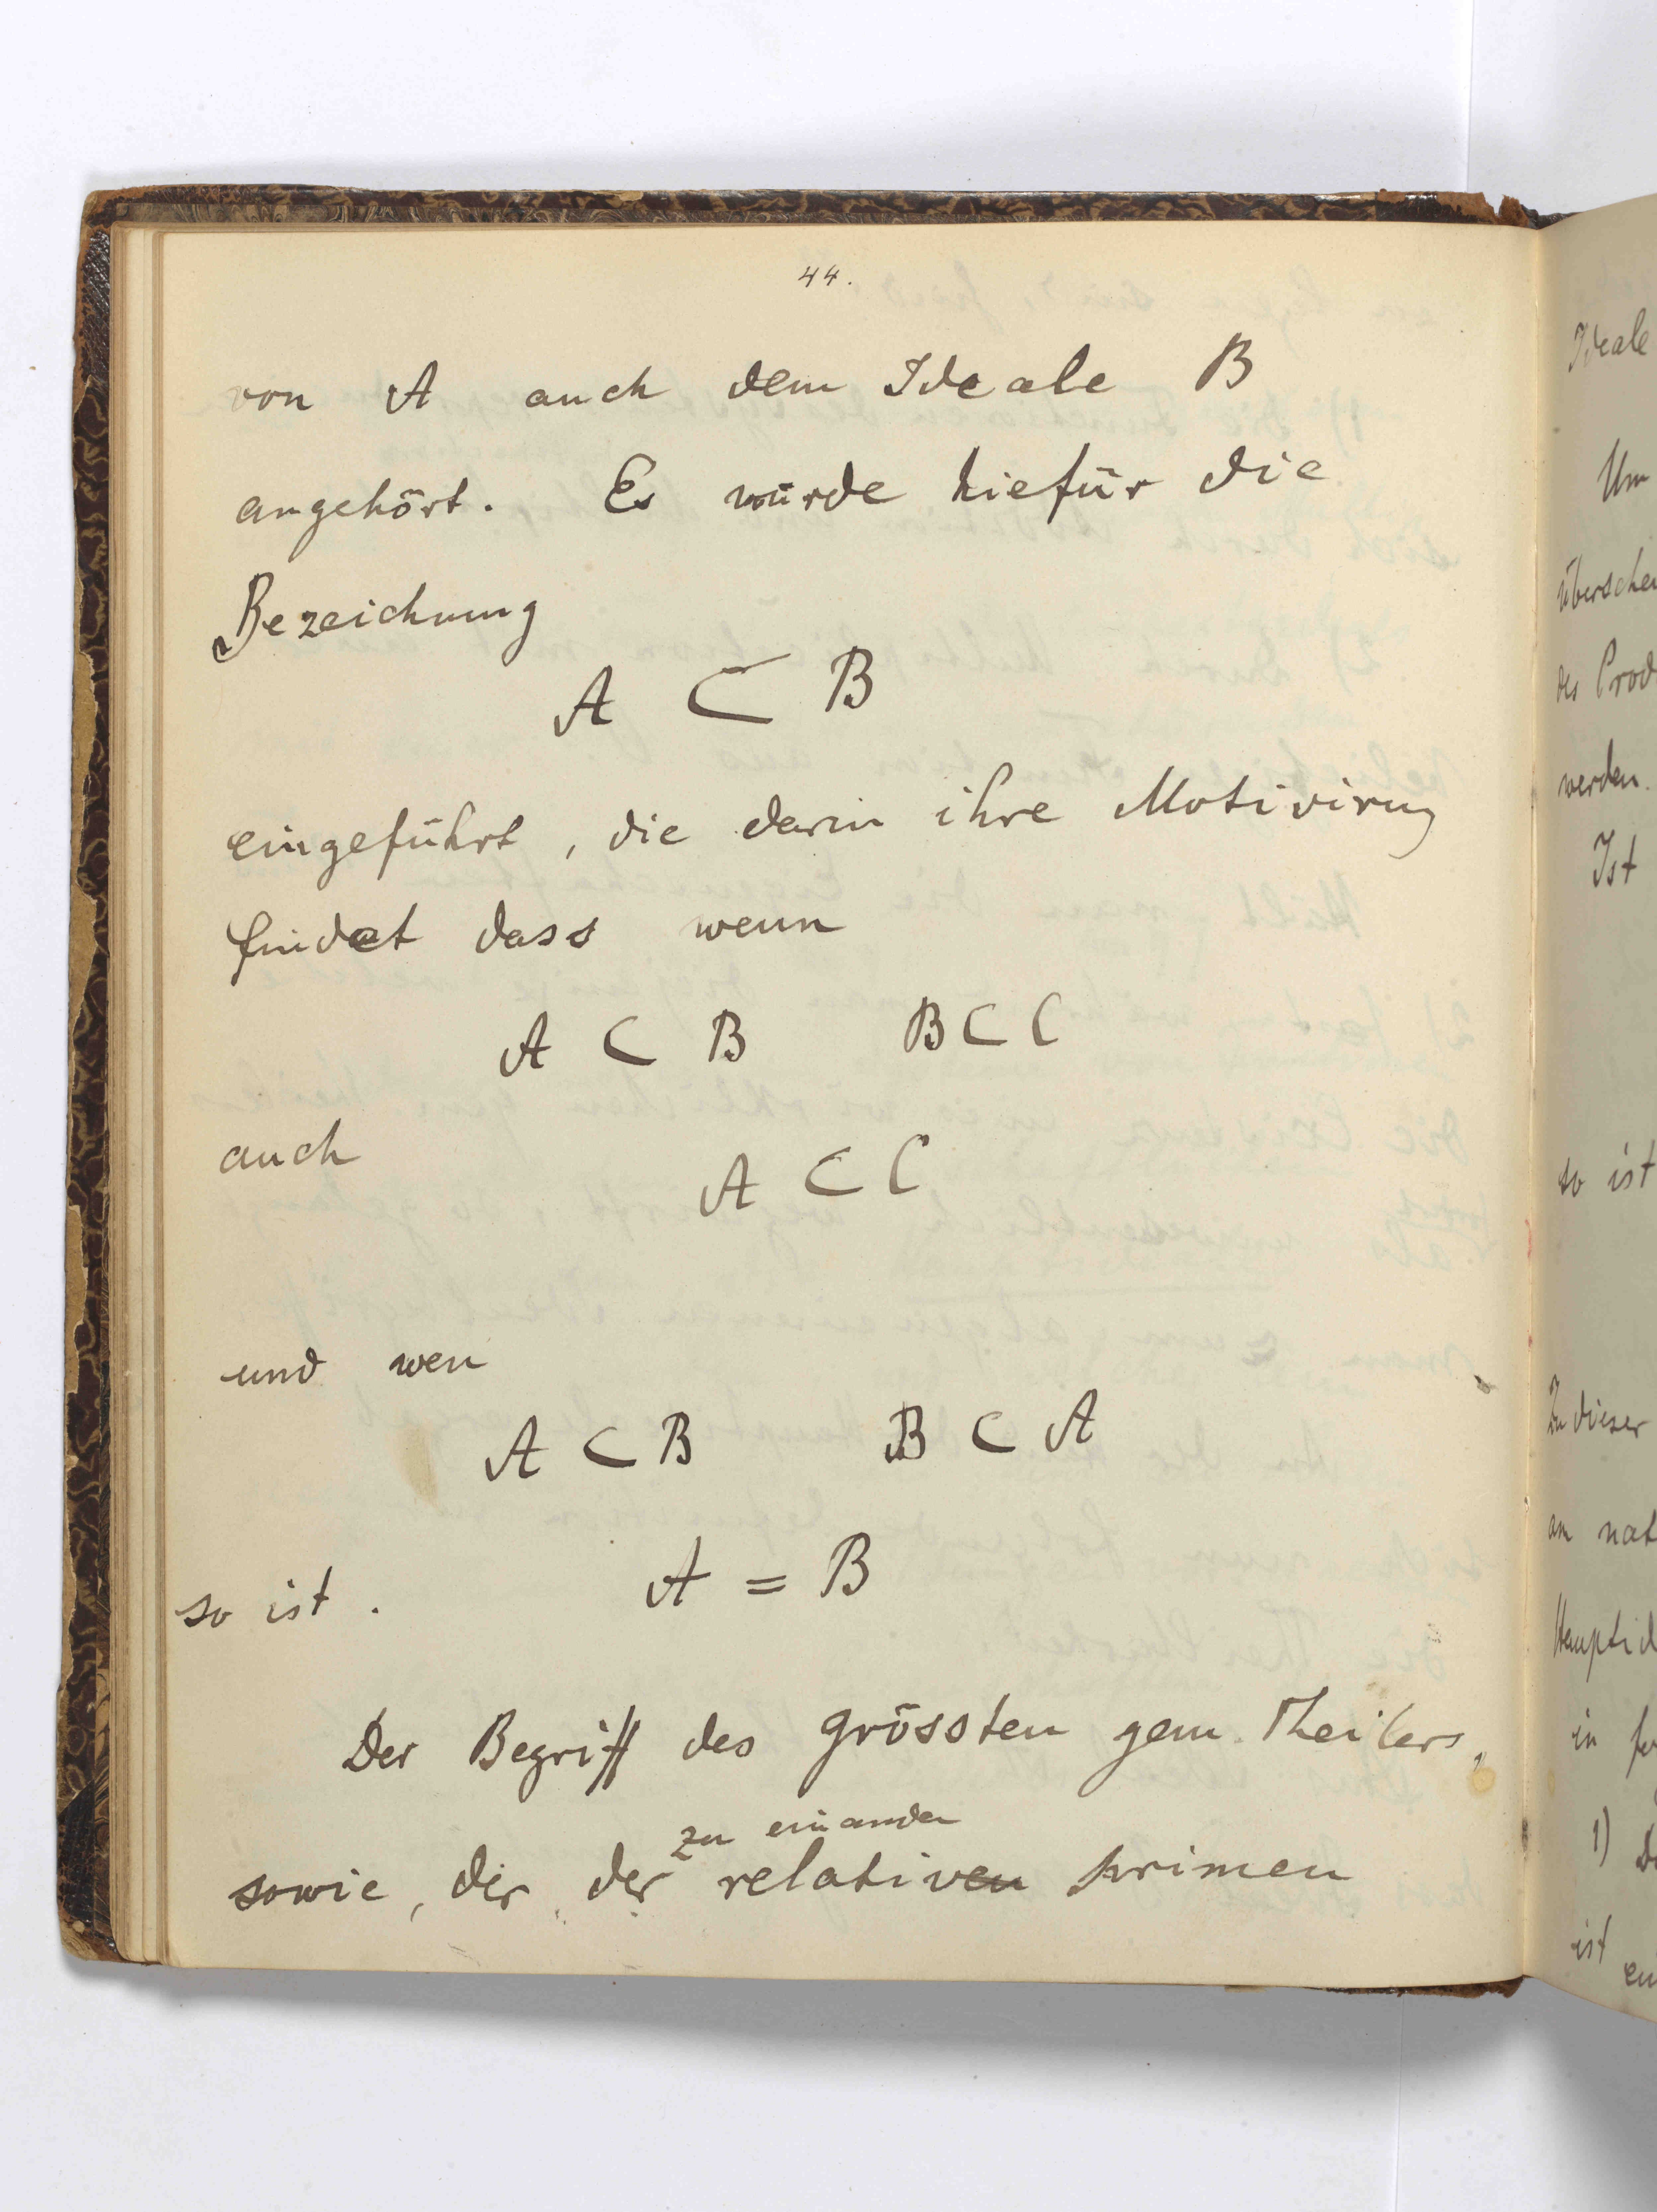 44.
von A auch dem Ideale B
angehört. Es wurde hiefür die
Bezeichnung
A ⊂ B
eingeführt, die darin ihre Motivirung
findet dass wenn
A ⊂ B B ⊂ C
auch
A ⊂ C
und wen
A ⊂ B B ⊂ A
so ist. A = B
Der Begriff des grössten gem. Theilers,
zu einander
sowie, der der relativen primen
Ideale
Um
überschen
des Prod
werden.
Ist
so ist
Zu dieser
an nat
Hauptid
in
1)
ist